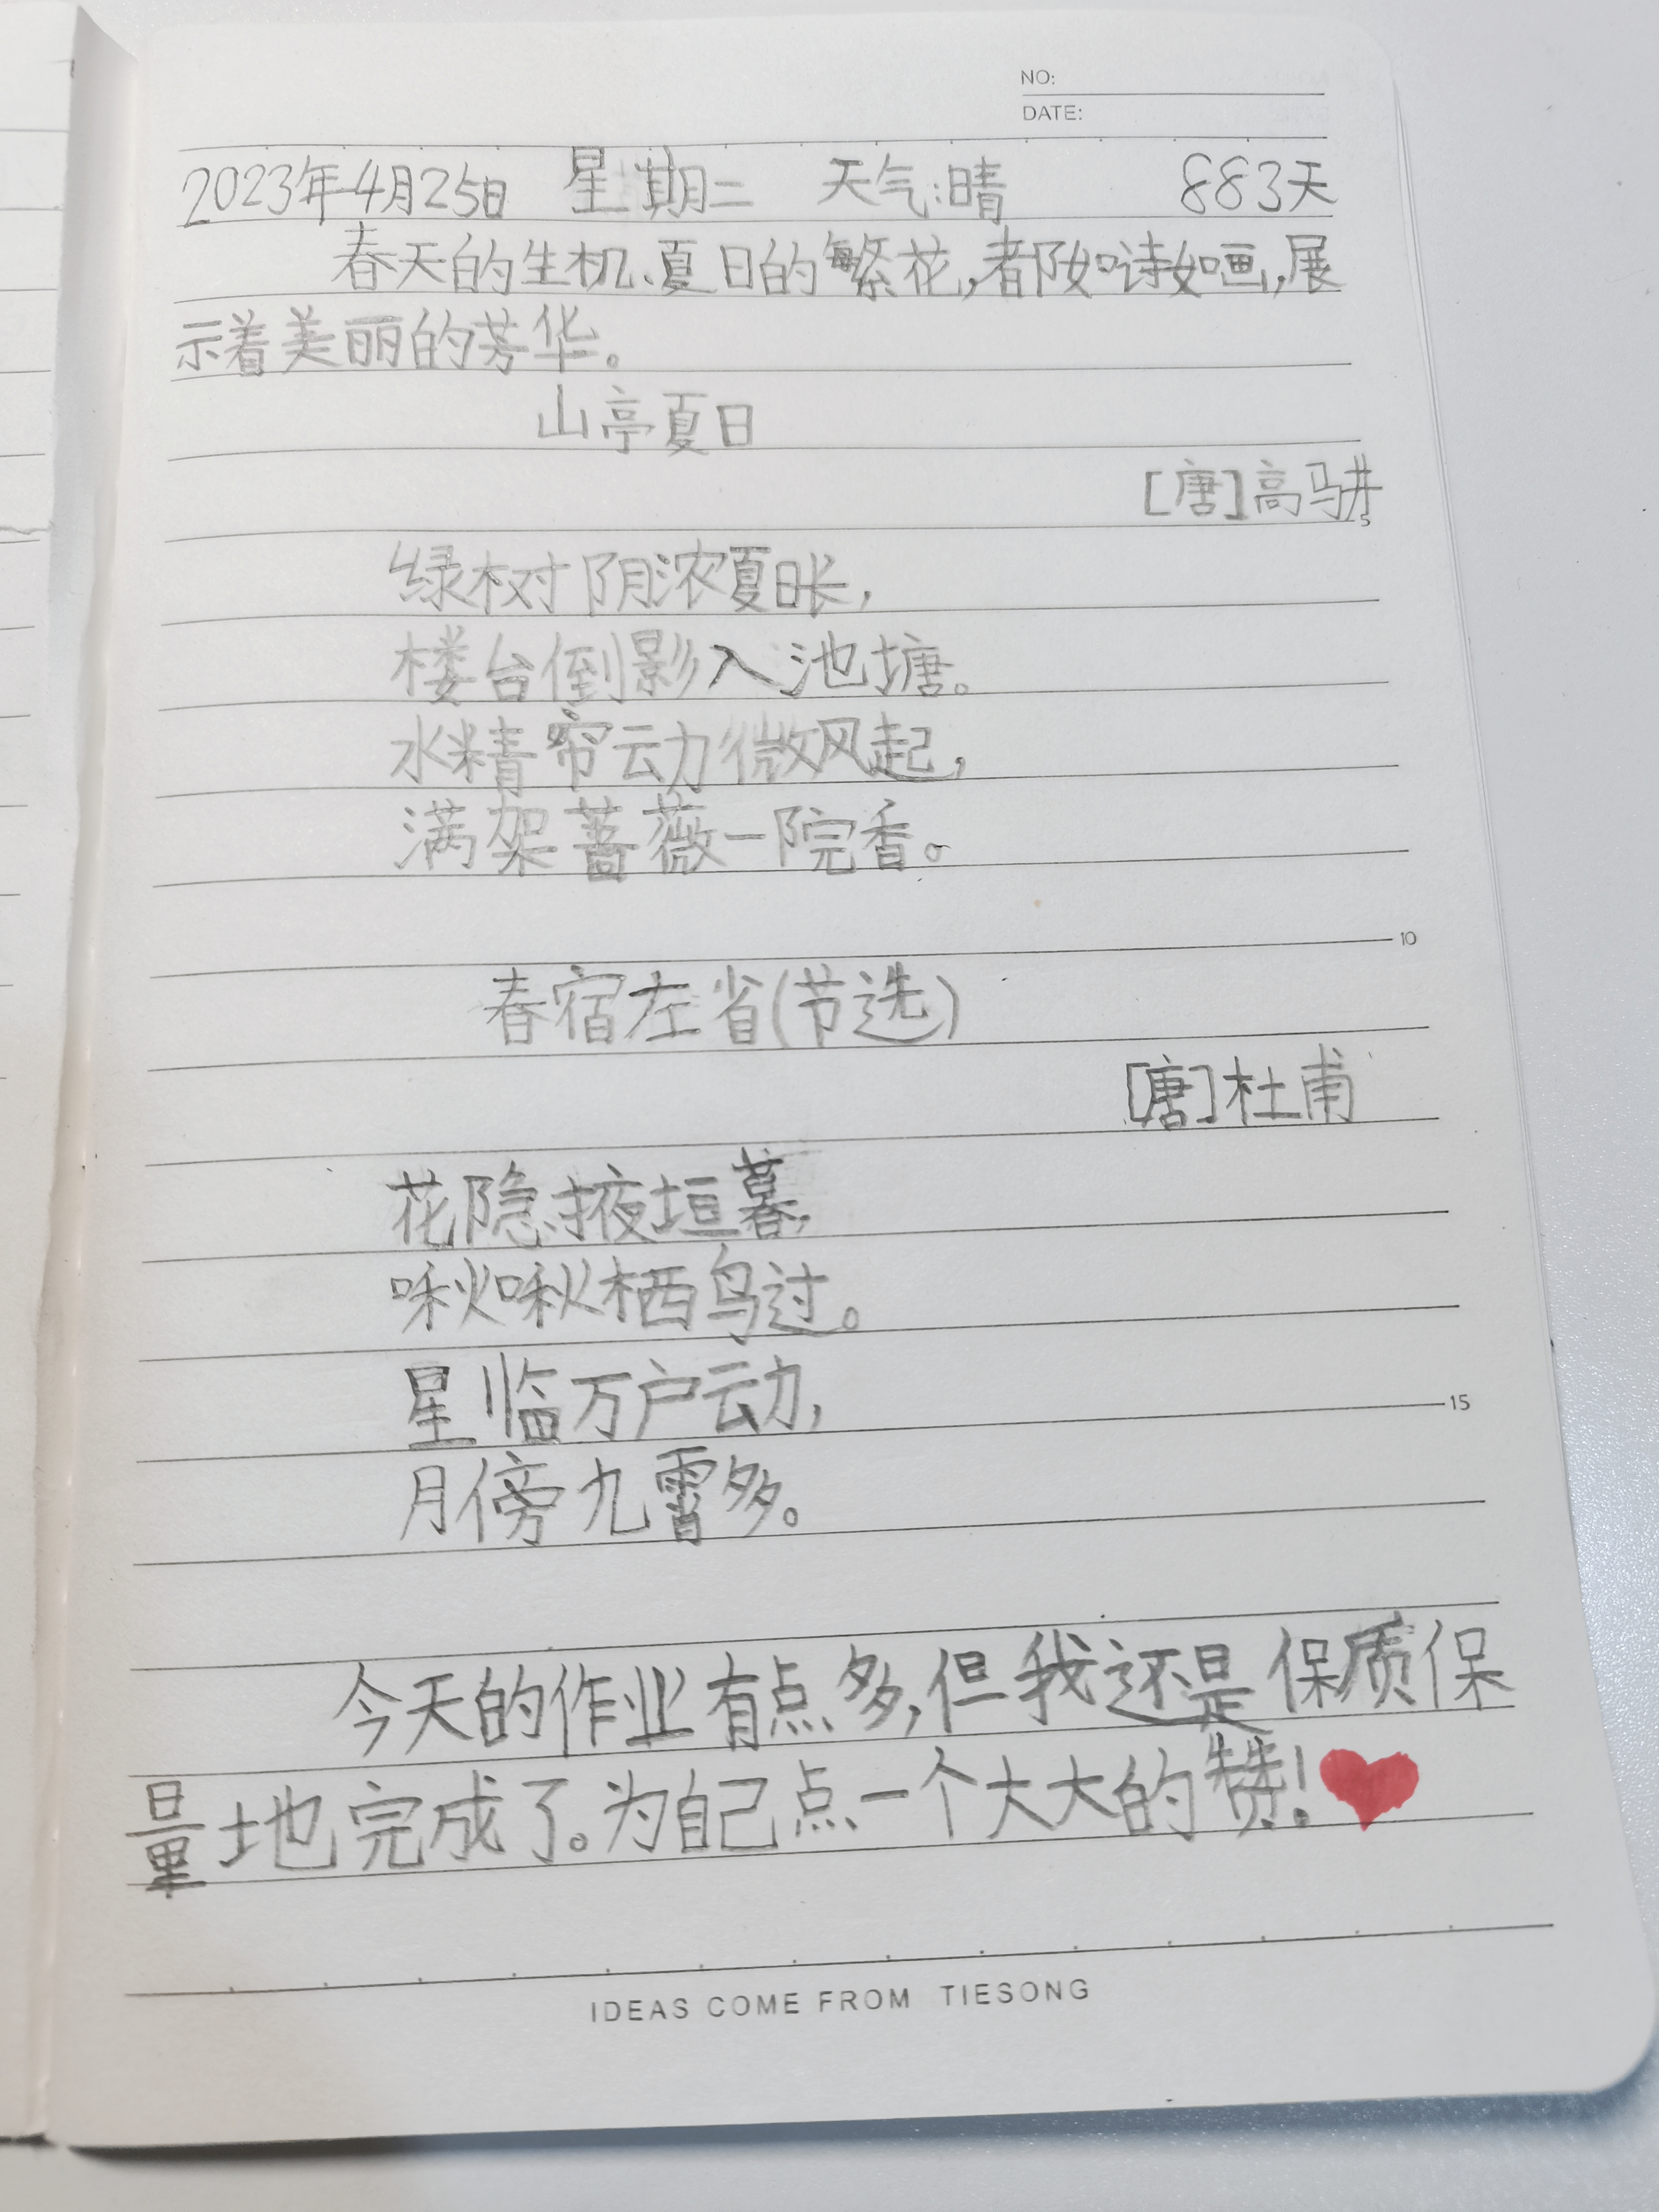 NO:
DATE:
2023年4月25日 星期二 天气:晴 883天
春天的生机、夏日的繁花,都如诗如画,展
示着美丽的芳华。
山亭夏日
[唐]高骈
绿树阴浓夏日长,
楼台倒影入池塘。
水精帘动微风起,
满架蔷薇一院香。
10
春宿左省(节选)
[唐]杜甫
花隐掖垣暮,
啾啾栖鸟过。
星临万户动,
15
月傍九霄多。
今天的作业有点多,但我还是保质保
量地完成了。为自己点一个大大的赞!
IDEAS COME FROM TIESONG